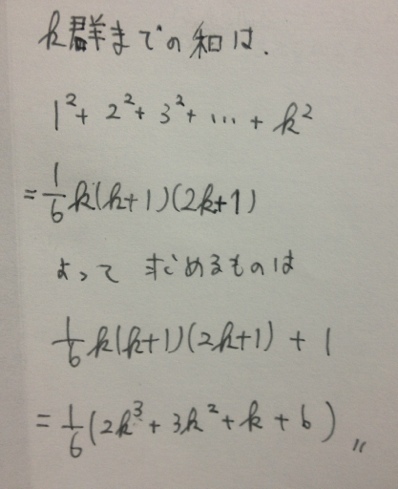 k群までの和は、
1²+2²+3²+…+k²
=1/6k(k+1)(2k+1)
よって 求めるものは
1/6k(k+1)(2k+1)+1
=1/6(2k³+3k²+k+6)〃